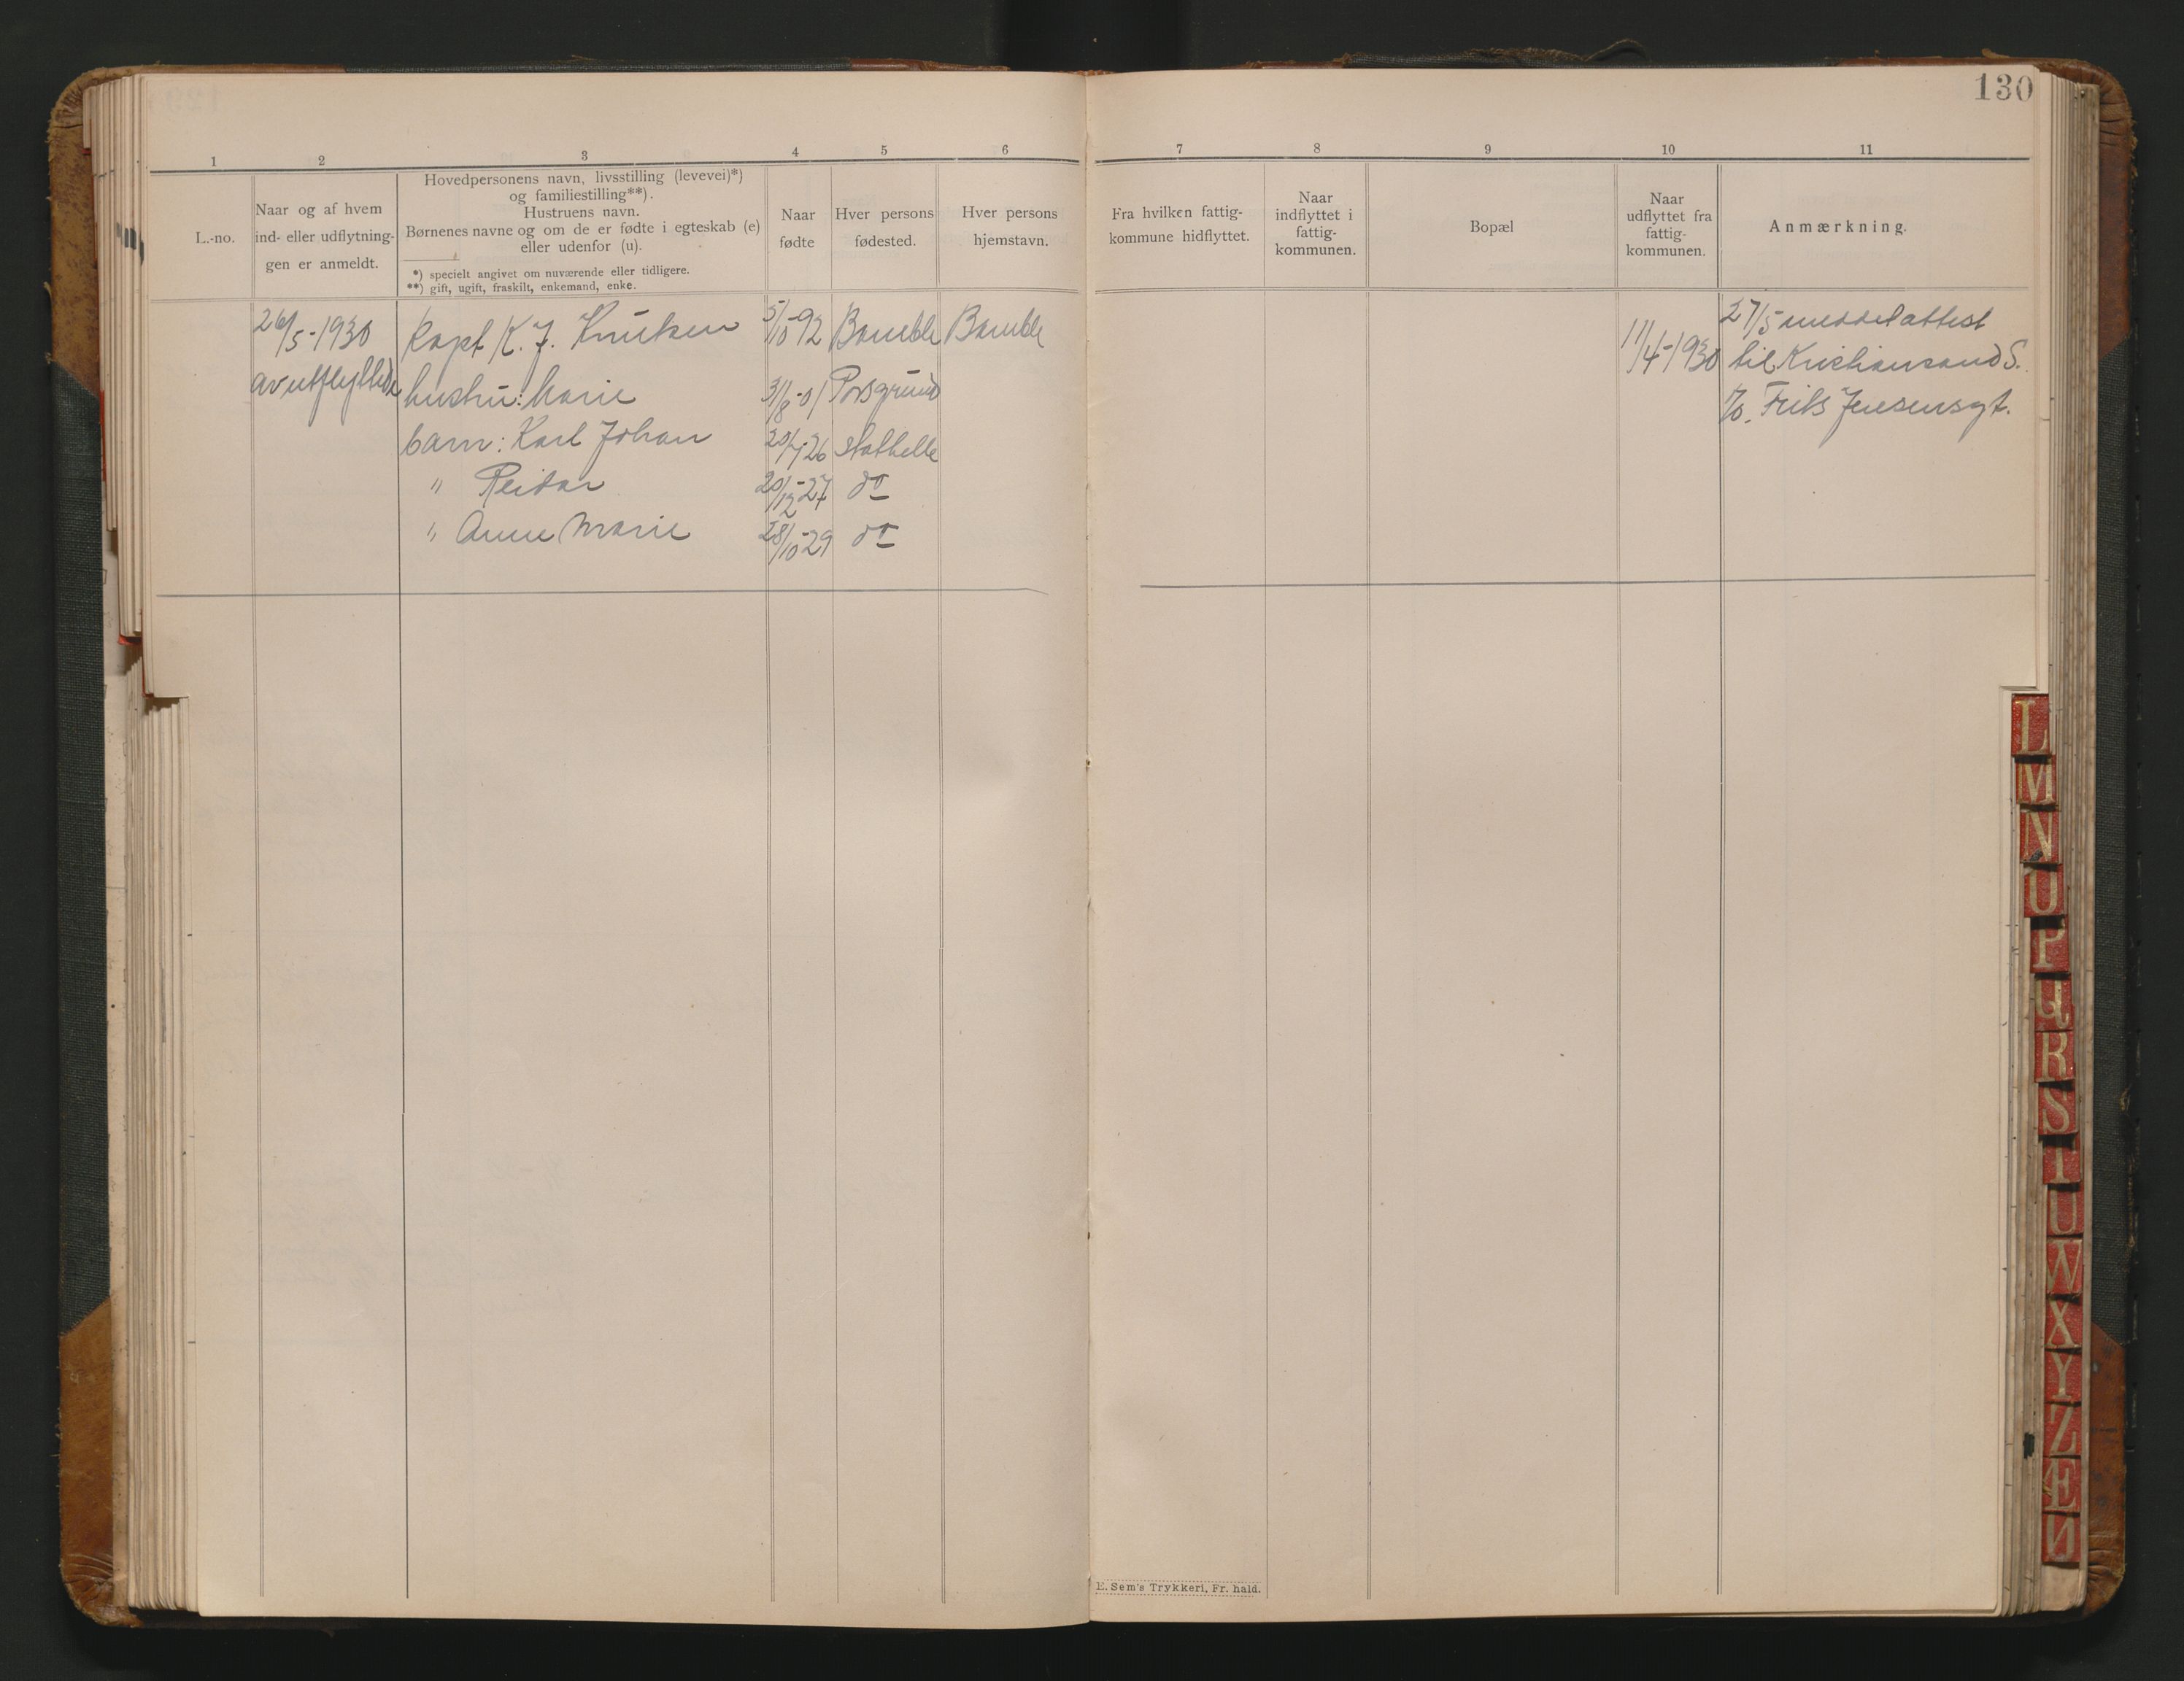 130
1 2 3 4 5 6 7 8 9 10 11
L.-no.
Naar og af hvem
ind- eller udflytnin-
gen er anmeldt.
Hovedpersonens navn, livsstilling (levevei)*)
og familiestilling**).
Hustruens navn.
Børnenes navne og om de er fødte i egteskab (e)
eller udenfor (u).
*) specielt angivet om nuværende eller tidligere.
**) gift, ugift, fraskilt, enkemand, enke.
Naar
fødte
Hver persons
fødested.
Hver persons
hjemstavn.
Fra hvilken fattig-
kommune hidflyttet.
Naar
indflyttet i
fattig-
kommunen.
Bopæl
Naar
udflyttet fra
fattig-
kommunen.
Anmærkning.
26/5-1930 Kapt K. J. Knutsen 5/10-92 Bamble Bamble 11/4-1930 27/5 meddel attest
til Kristiansand S.
av utflyttede hustru: Marie 31/8-01 Porsgrund
%. Frits Jensensgt.
barn: Karl Johan 20/7-26 Stathelle
" Reidar 20/12-27 do
" Anne Marie 28/10-29 do
L
M
N
O
P
Q
R
S
T
U
W
X
Y
Z
Æ
E. Sem's Trykkeri, Fr. hald.